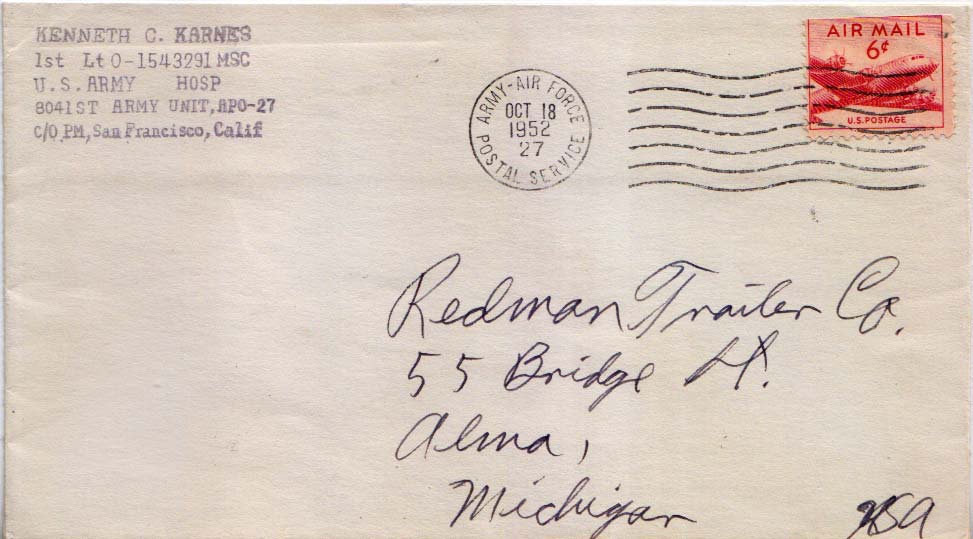 KENNETH C. KARNES
1st Lt O-1543291 MSC
U.S. ARMY HOSP
8041ST ARMY UNIT, APO-27
C/O PM, San Francisco, Calif
ARMY-AIR FORCE
OCT 18
1952
27
POSTAL SERVICE
AIR MAIL
6¢
U.S. POSTAGE
Redman Trailer Co.
55 Bridge St.
Alma,
Michigan
USA